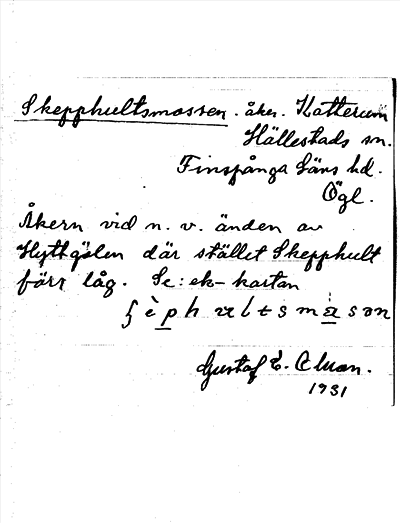 Skepphultsmossen. åker. Katterum
Hällestads sn.
Finspånga läns hd.
Ögl.
Åkern vid n. v. änden av
Hyttgölen där stället Skepphult
förr låg. Se: ek-kartan
Gustaf E.
1931